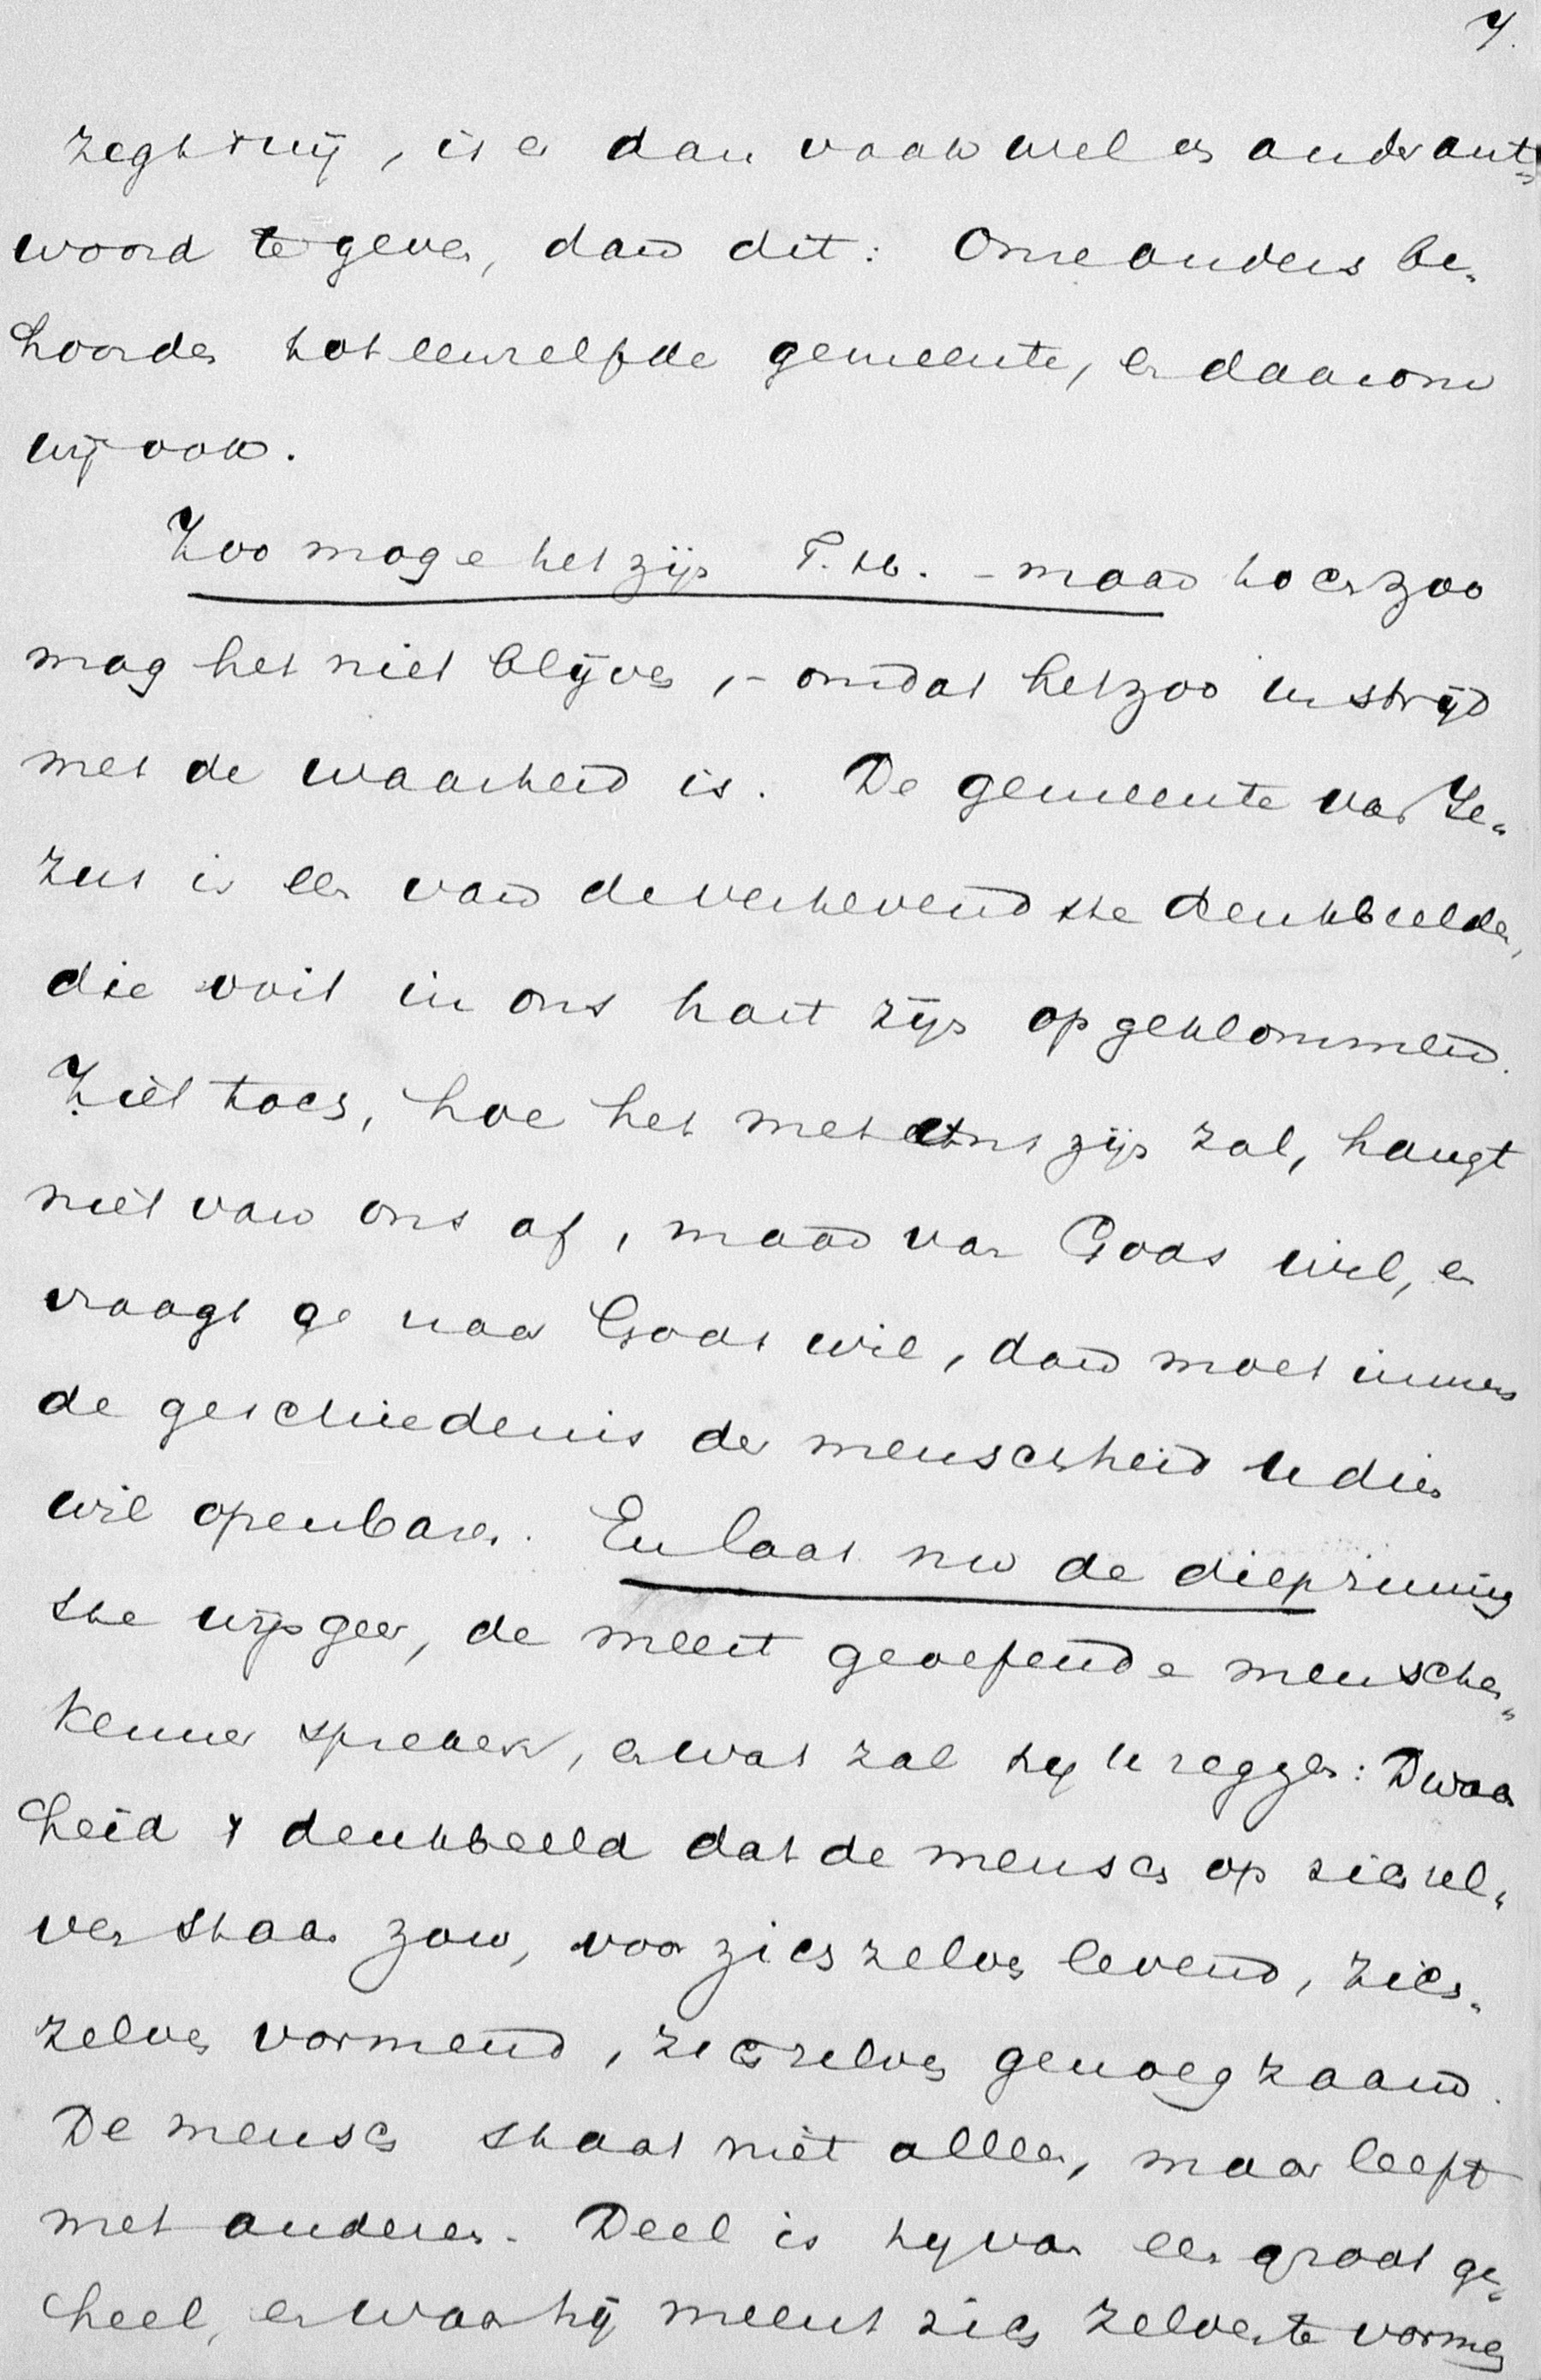 7.
zegt mij, is er dan vaak wel een ander ant-
woord te geven, dan dit: Onze ouders be-
hoorden tot eenzelfde gemeente, en daarom
wij ook.
Zoo moge het zijn T.H. – maar toch zoo
mag het niet blijven, – omdat het zoo in strijd
met de waarheid is. De gemeente van Je-
zus is een van de verhevendste denkbeelden,
die ooit in ons hart zijn opgeklommen.
Ziet toch, hoe het met ons zijn zal, hangt
niet van ons af, maar van Gods wil, en
vraagt ge naar Gods wil, dan moet immers
de geschiedenis der menschheid u dien
wil openbaren. En laat nu de diepzinnig
ste wijsgeer, de meest geoefende menschen-
kenner spreken, en wat zal hij u zeggen: Dwaas
heid 't denkbeeld dat de mensch op zichzel-
ven staan zou, voor zichzelven levend, zich-
zelven vormend, zichzelven genoegzaam.
De mensch staat niet alleen, maar leeft
met anderen. Deel is hij van een groot ge-
heel, en waar hij meent zich zelven te vormen